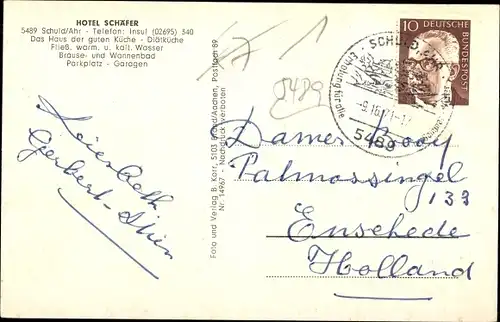 HOTEL SCHÄFER
5489 Schuld/Ahr - Telefon: Insul (02695) 340
Das Haus der guten Küche - Diätküche
Fließ. warm. u. kalt. Wasser
Brause- und Wannenbad
Parkplatz - Garagen
Foto und Verlag B. Korr, 5103 Brand/Aachen, Postfach 89
Nr. 14967 - Nachdruck verboten
5489
10
DEUTSCHE BUNDESPOST
SCHULD, AHR
Erholung für alle
5489
Dames Booy
Palmossingel
133
Enschede
Holland